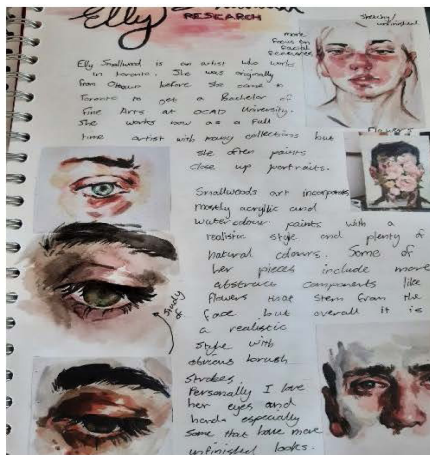 Elly
RESEARCH
Sketchy/
unfinished
more
focus on
facial
Elly Smallwood is an artist who works
in toronto. She was originally
from Ottawa before she came to
Toronto to get a Bachelor of
Fine Arts at OCAD University.
She works now as a full
time artist with many collections but
she often paints
close up portraits.
Flowers
Smallwoods art incorporates
mostly acrylic and
watercolour paints with a
realistic style and plenty of
natural colours. Some of
her pieces include more
abstract components like
flowers that stem from the
face but overall it is
a realistic
style with
obvious brush
strokes.
Study
of
Personally I love
her eyes and
hands especially
some that have more
unfinished looks.